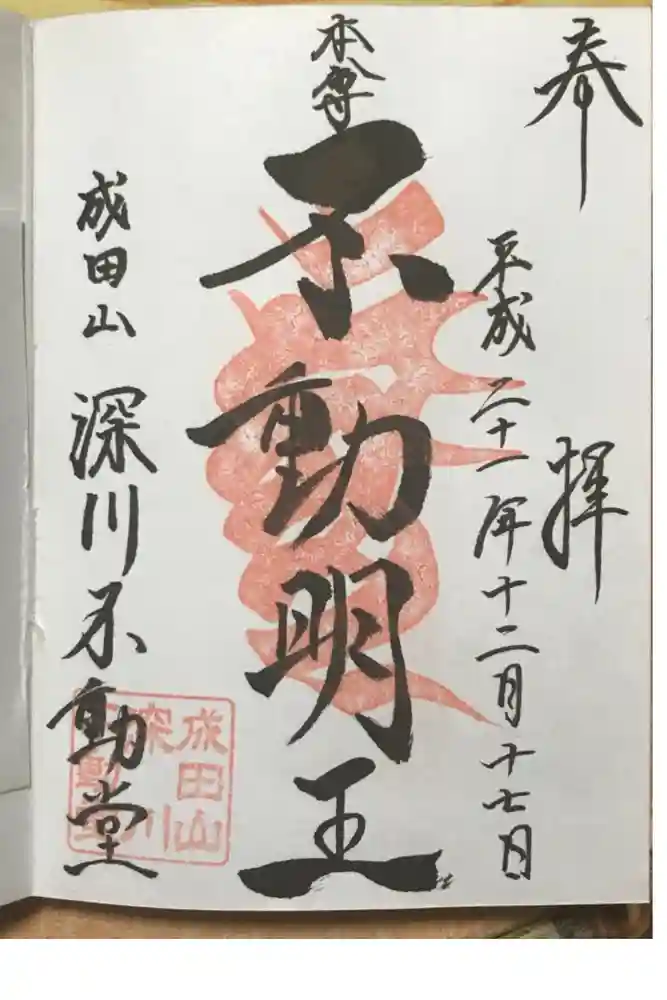 奉拝
平成二十一年十二月十七日
本尊
不動明王
成田山
深川不動堂
成田山
深川
不動堂